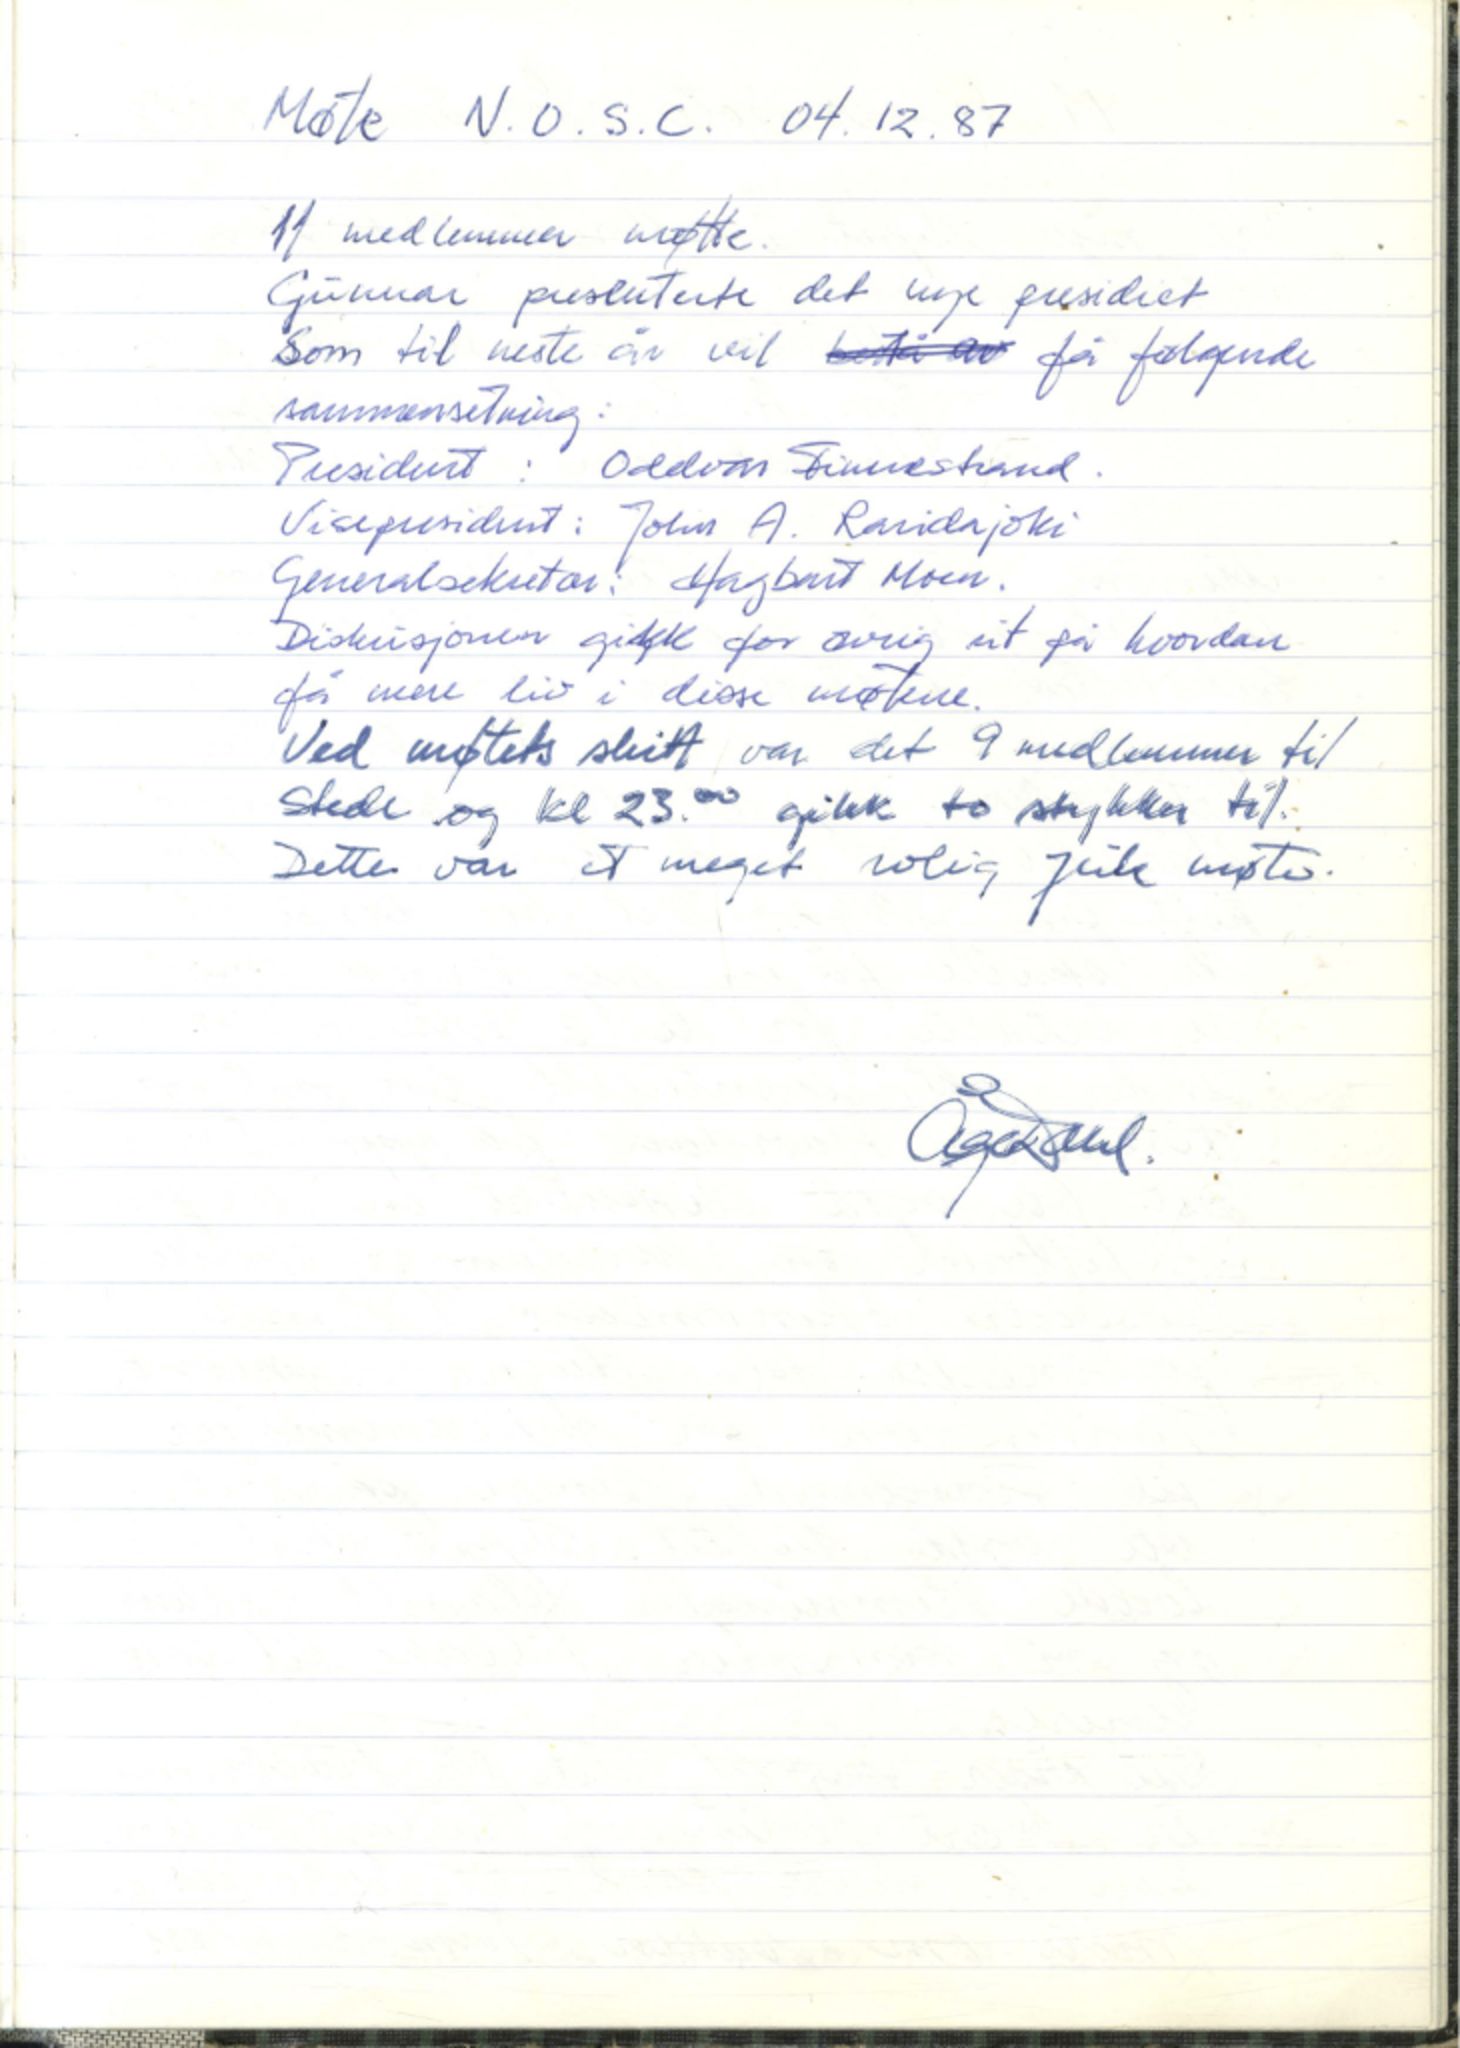 Møte N.O.S.C. 04.12.87
11 medlemmer møtte.
Gunnar presenterte det nye presidiet
Som til neste år vil bestå av få følgende
sammensetning:
President : Oddvar Finnestrand.
Visepresident: John A.
Generalsekretær: Hagbart Moen.
Diskusjonen gikk for øvrig ut på hvordan
få mere liv i disse møtene.
Ved møtets slutt var det 9 medlemmer til
Stede og kl 23.00 gikk to stykker til.
Dette var et meget rolig Jule møte.